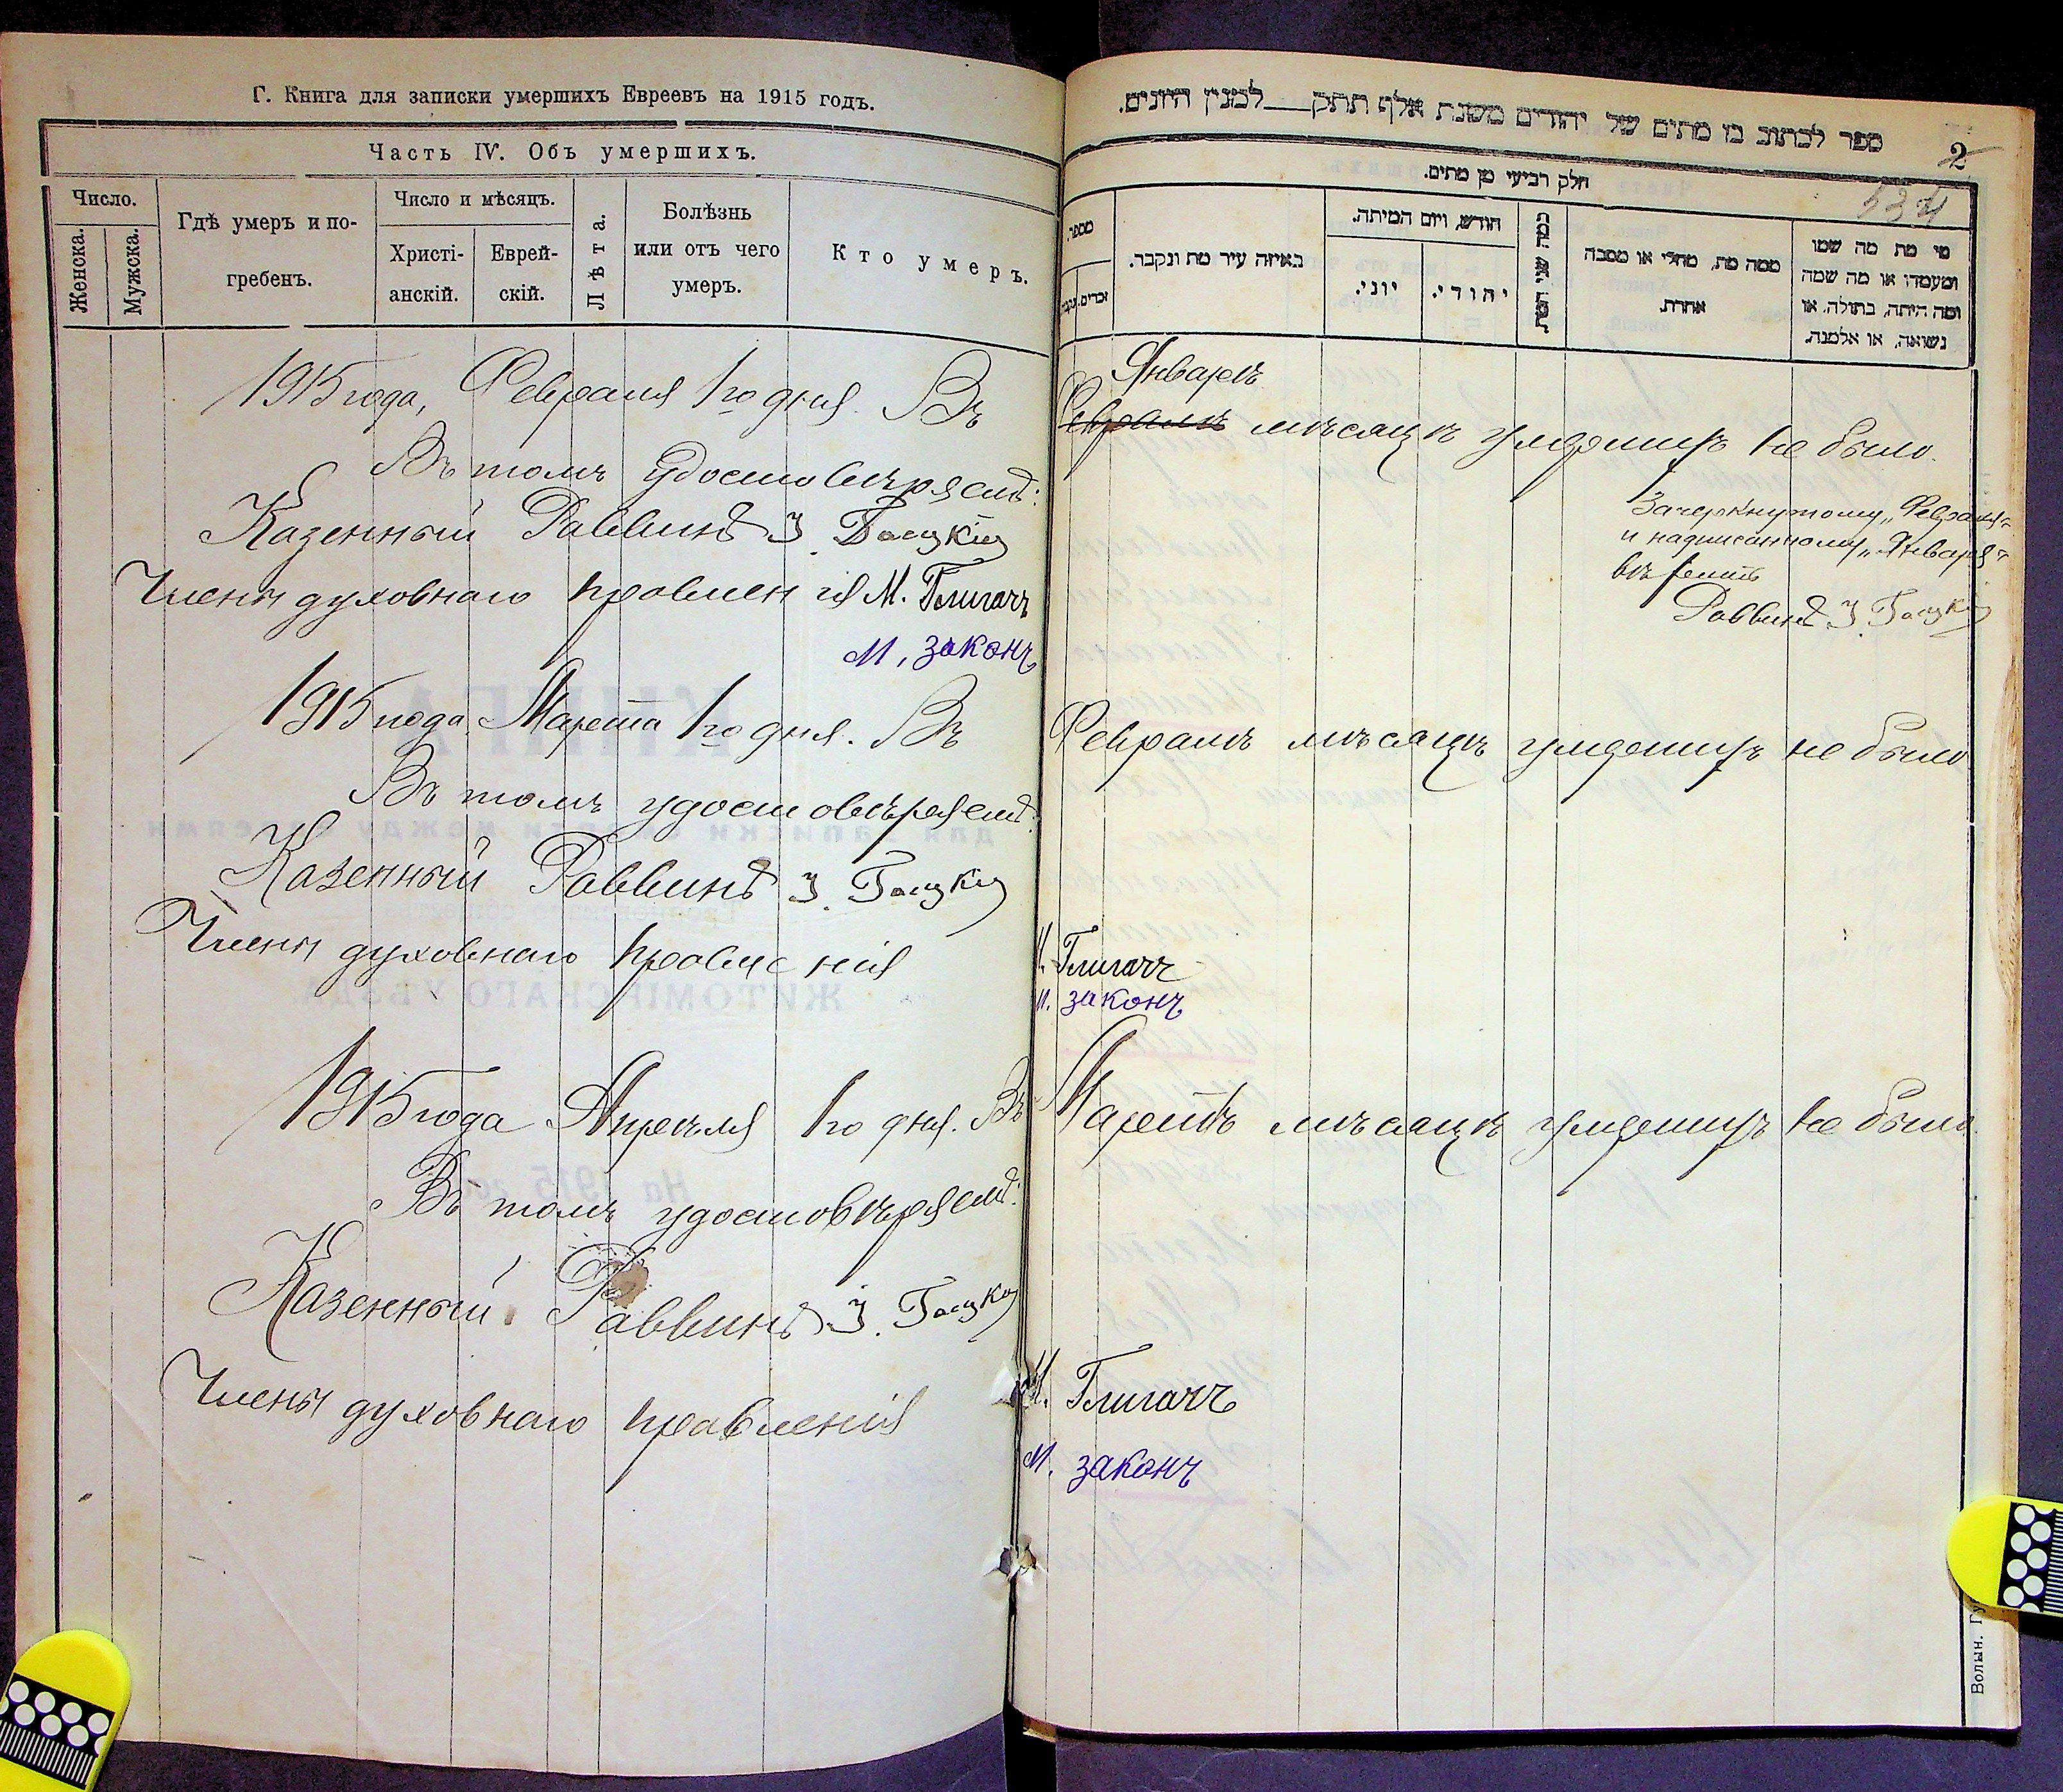 Г. Книга для записки умершихъ Евреевъ на 1915 годъ.
Часть IV. Объ умершихъ.
Число.
Женска.
Мужска.
Гдѣ умеръ и по-
гребенъ.
Число и мѣсяцъ.
Христі-
анскій.
Еврей-
скій.
Лѣта.
Болѣзнь
или отъ чего
умеръ.
Кто умеръ.
1915 года, Февраля 1го дня. Въ
Въ томъ удостовѣряемъ:
Казенный Раввинъ З.
Члены духовнаго правленія М. Глигачъ
М. законъ
1915 года, Марта 1го дня. Въ
Въ томъ удостовѣряемъ:
Казенный Раввинъ З.
Члены духовнаго правленія
1915 года Апрѣля 1го дня. Въ
Въ томъ удостовѣряемъ:
Казенный Раввинъ З.
Члены духовнаго правленія
ספר לכתוב בו מתים של יהודים משנת אלף תתק___למנין היונים.
2
534
חלק רביעי מן מתים.
מספר.
זכרים.
באיזה עיר מת ונקבר.
חודש, ויום המיתה.
יוני.
יהודי.
ממה מת, מחלי או מסבה
אחרת.
מי מת מה שמו
ומעמדו או מה שמה
ומה היתה, בתולה, או
נשואה, או אלמנה.
Январѣ
Февралѣ мѣсяцѣ умершихъ не было.
Зачеркнутому „Февраля"
и надписанному „Января"
вѣрить
Раввинъ З.
Февралѣ мѣсяцѣ умершихъ не было
М. Глигачъ
М. законъ
Мартѣ мѣсяцѣ умершихъ не было.
М. Глигачъ
М. законъ
Волын.